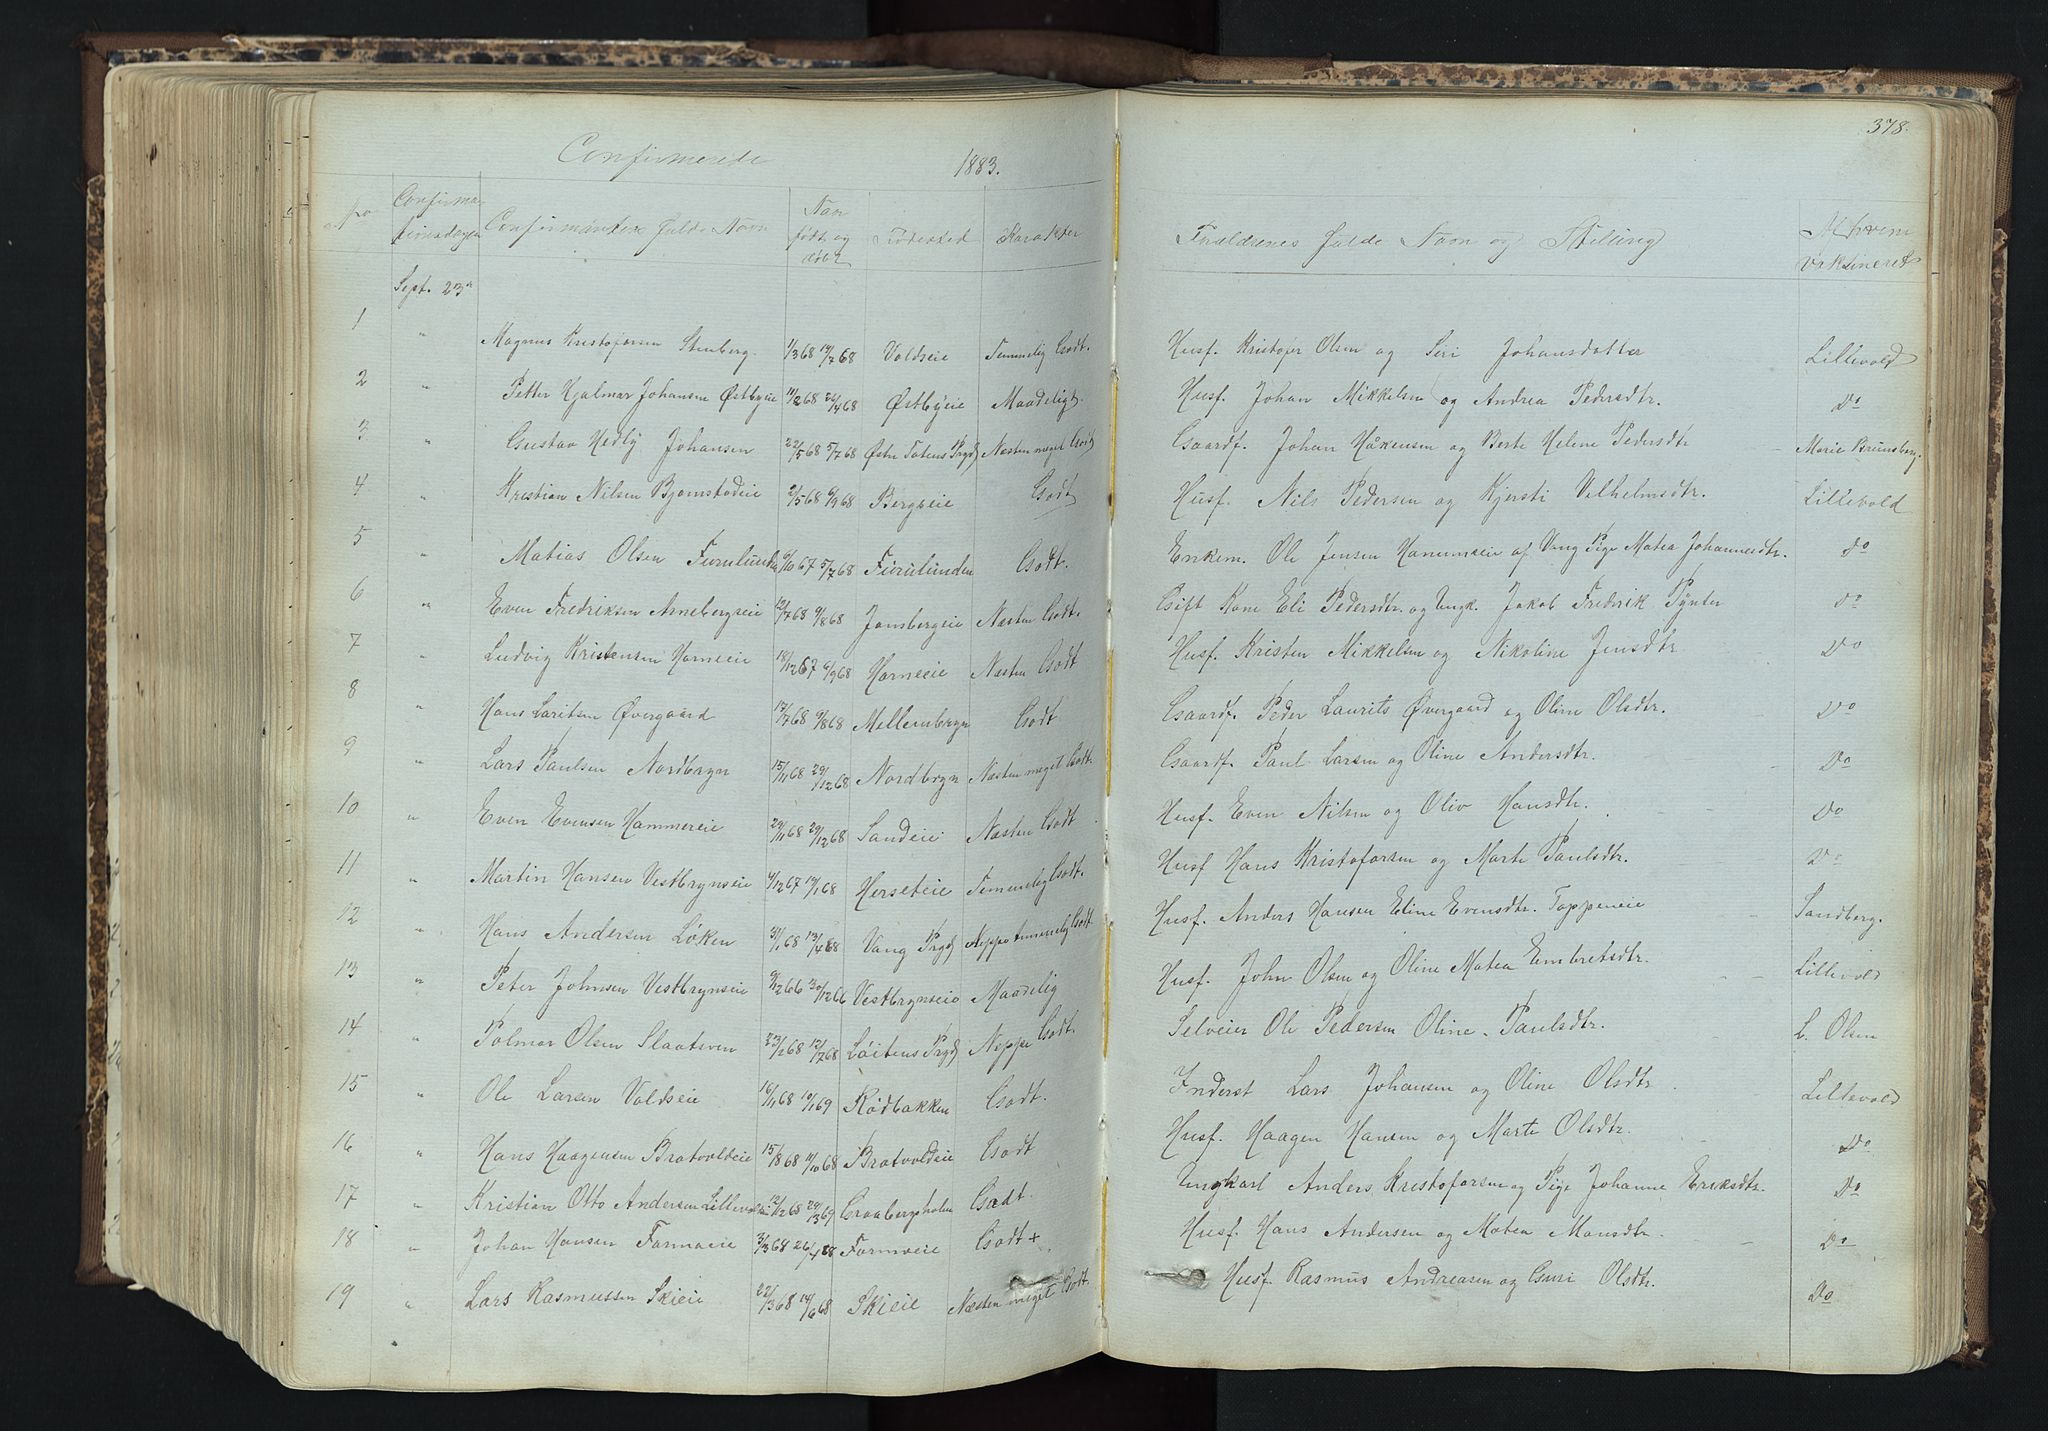 378.
Confirmerede 1883.
No Confirmationsdagen Confirmanten fulde Navn Naar født og døbt Fødested Karakter Forældrenes fulde Navn og Stilling Af hvem Vaksineret
Sept. 23d
1 " Magnus Kristofersen Stenberg. 1/3 68 19/7 68 Voldseie Temmelig Godt. Husf. Kristofer Olsen og Siri Johansdatter Lillevold
2 " Petter Hjalmar Johansen Østbyeie 11/2 68 26/4 68 Østbyeie Maadeligt. Husf. Johan Mikkelsen og Andrea Pedersdtr. Do
3 " Gustav Hedly Johansen 22/5 68 5/7 68 Østre Totens Prgj Næsten meget Godt Gaardf. Johan Håkensen og Berte Helene Pedersdtr Marie Brunsberg.
4 " Kristian Nilsen Bjørnstadeie 2/5 68 6/9 68 Bergseie Godt Husf. Nils Pedersen og Kjersti Vilhelmsdtr. Lillevold
5 " Matias Olsen Furulunden 9/10 67 5/7 68 Furulunden Godt. Enkem. Ole Jensen Hanumseie af Vang Pige Matea Johannesdtr. Do
6 " Even Fredriksen Arnebergseie 12/7 68 9/8 68 Jønsbergeie Næsten Godt. Gift Kone Eli Pedersdtr. og Ungk. Jakob Frederik Pynter Do
7 " Ludvig Kristensen Horneeie 18/12 67 6/9 68 Horneeie Næsten Godt Husf. Kristen Mikkelsen og Nikoline Jensdtr Do
8 " Hans Laritsen Øvergaard 17/7 68 9/8 68 Mellembryn Godt Gaardf. Peder Laurits Øvergaard og Oline Olsdtr. Do
9 " Lars Paulsen Nordbryn 15/11 68 29/12 68 Nordbryn Næsten meget Godt. Gaardf. Paul Larsen og Oline Andersdtr. Do
10 " Even Evensen Hammereie 24/11 68 29/12 68 Sandeie Næsten Godt Husf. Even Nilsen og Oliv Hansdtr. Do
11 " Martin Hansen Vestbrynseie 4/12 67 19/1 68 Herseteie Temmelig Godt. Husf Hans Kristofersen og Marte Paulsdtr. Do
12 " Hans Andersen Løken 31/1 68 13/4 68 Vang Prgj Neppe temmelig Godt Husf. Anders Hansen Eline Evensdtr. Toppeneie Sandberg.
13 " Peter Johnsen Vestbrynseie 3/12 66 30/12 66 Vestbrynseie Maadelig Husf. John Olsen og Oline Matea Embretsdtr. Lillevold
14 " Polmar Olsen Slaatsveen 23/2 68 12/7 68 Løitens Prgj Neppe Godt. Selveier Ole Pedersen Oline Paulsdtr. L. Olsen
15 " Ole Larsen Voldseie 16/11 68 10/1 69 Rødbakken Godt. Inderst Lars Johansen og Oline Olsdtr Lillevold
16 " Hans Haagensen Bratvoldeie 15/8 68 11/10 68 Bratvoldeie Godt Husf. Haagen Hansen og Marte Olsdtr. Do
17 " Kristian Otto Andersen 12/12 68 29/3 69 Graabergsholen Godt. Ungkarl Anders Kristofersen og Pige Johanne Eriksdtr. Do
18 " Johan Hansen Farmoeie 3/3 68 Farmoeie Godt + Husf. Hans Andersen og Matea Monsdtr. Do
19 " Lars Rasmussen Skieie 22/3 68 14/6 68 Skieie Næsten meget Godt. Husf. Rasmus Andreasen og Guri Olsdtr. Do